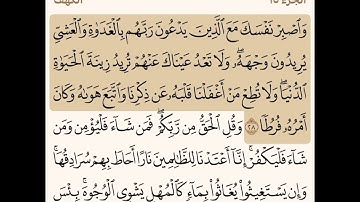 الجزء ١٥ الكهف
وَٱصْبِرْ نَفْسَكَ مَعَ ٱلَّذِينَ يَدْعُونَ رَبَّهُم بِٱلْغَدَوٰةِ وَٱلْعَشِىِّ
يُرِيدُونَ وَجْهَهُۥۖ وَلَا تَعْدُ عَيْنَاكَ عَنْهُمْ تُرِيدُ زِينَةَ ٱلْحَيَوٰةِ
ٱلدُّنْيَاۖ وَلَا تُطِعْ مَنْ أَغْفَلْنَا قَلْبَهُۥ عَن ذِكْرِنَا وَٱتَّبَعَ هَوَىٰهُ وَكَانَ
أَمْرُهُۥ فُرُطًا ٢٨ وَقُلِ ٱلْحَقُّ مِن رَّبِّكُمْۖ فَمَن شَآءَ فَلْيُؤْمِن وَمَن
شَآءَ فَلْيَكْفُرْۚ إِنَّآ أَعْتَدْنَا لِلظَّـٰلِمِينَ نَارًا أَحَاطَ بِهِمْ سُرَادِقُهَاۚ
وَإِن يَسْتَغِيثُوا۟ يُغَاثُوا۟ بِمَآءٍ كَٱلْمُهْلِ يَشْوِى ٱلْوُجُوهَۚ بِئْسَ